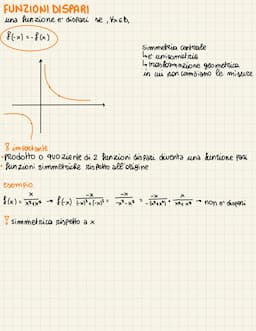 FUNZIONI DISPARI
una funzione e' dispari se, ∀x∈D,
f(-x) = -f(x)
Simmetria centrale
↳ e' un'isometria
↳ trasformazione geometrica
in cui non cambiano le misure
importante
• Prodotto o quoziente di 2 funzioni dispari diventa una funzione pari
• funzioni simmetriche rispetto all'origine
esempio
f(x) = x/x³+x² → f(-x) -x/(-x)³+(-x)² = -x/-x³-x² = -x/-(x³+x²) = x/x³+x² → non e' dispari
simmetrica rispetto a x